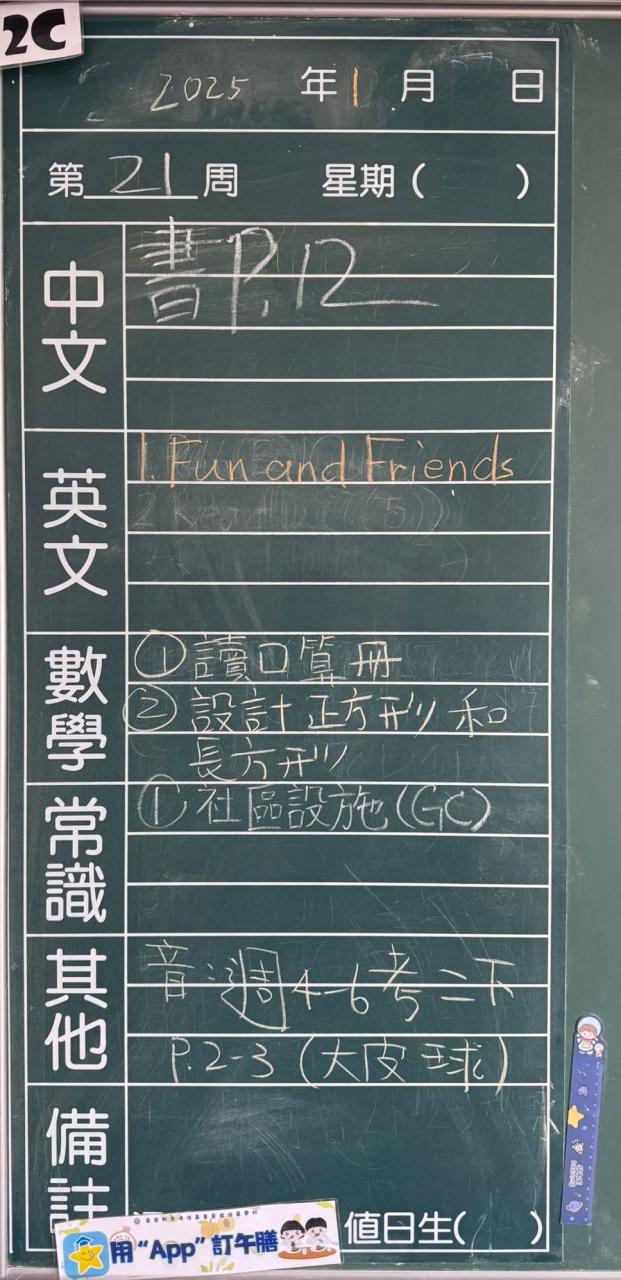 2C
2025 年 1 月 日
第 21 周 星期( )
中文
書P.12
英文
1. Fun and Friends
數學
① 讀口算冊
② 設計正方形和
長方形
常識
① 社區設施(GC)
其他
音:週4-6考二下
P.2-3 (大皮球)
備註
值日生( )
用“App”訂午膳